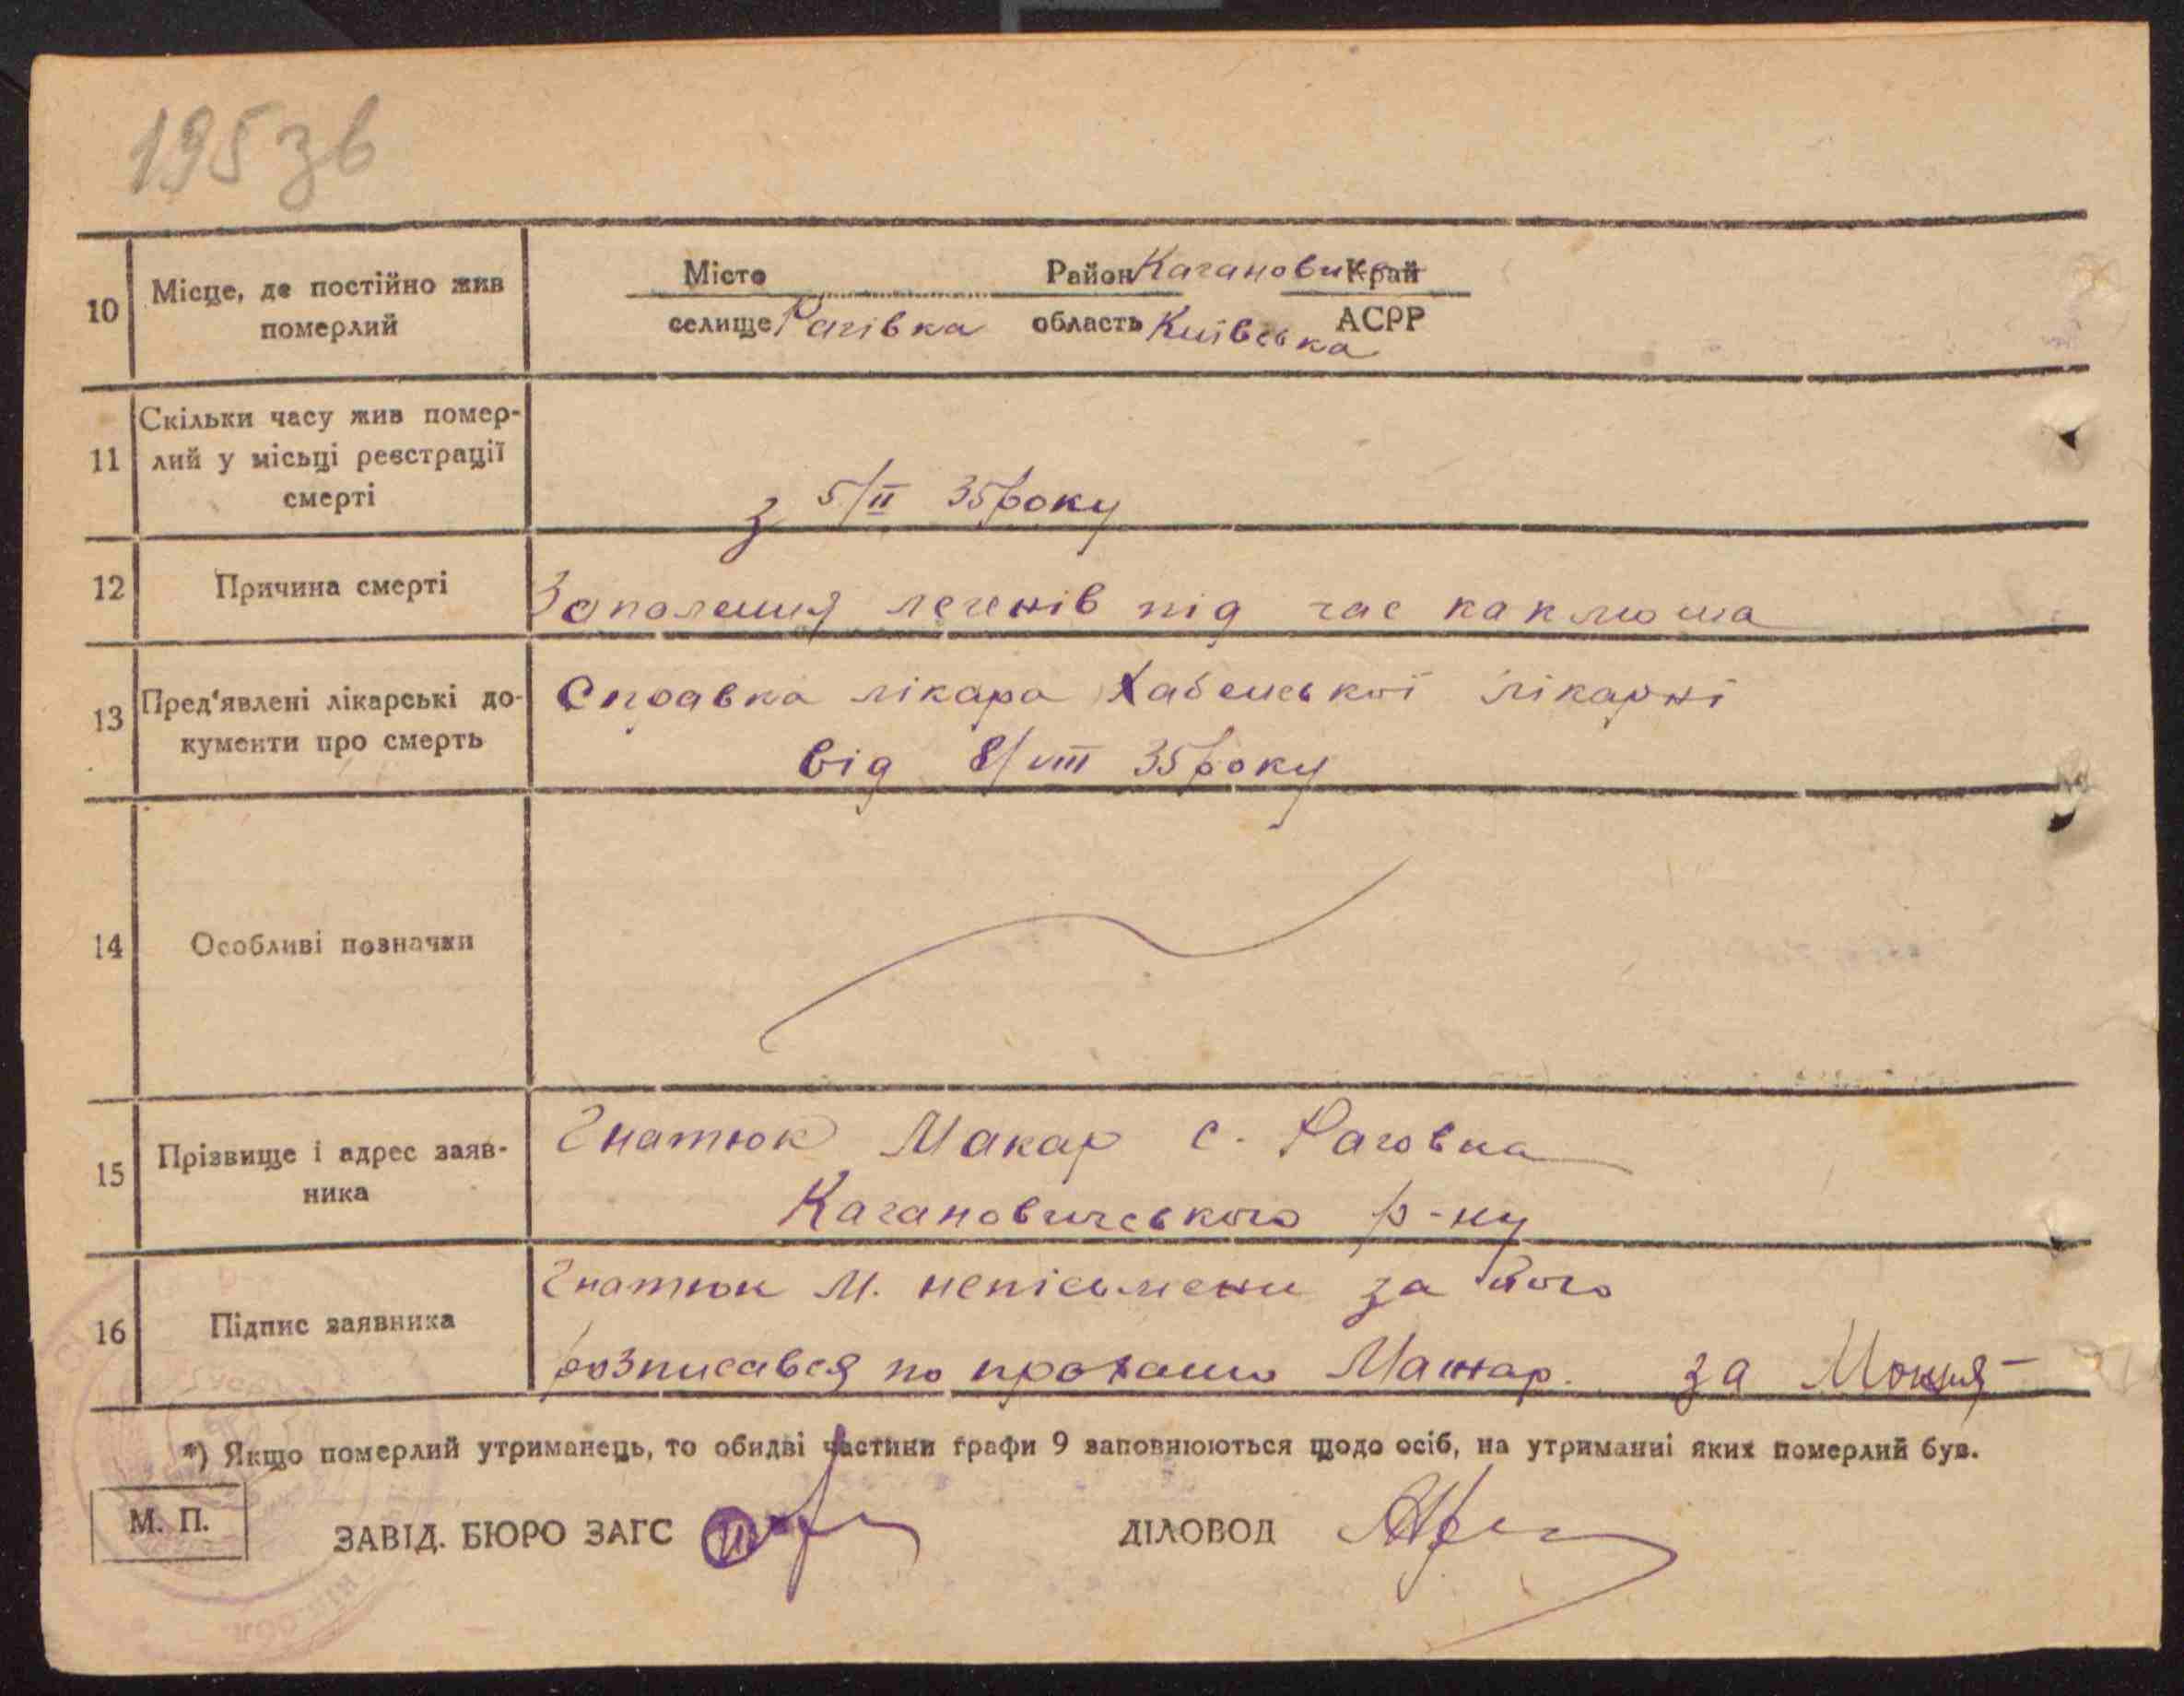 195 зв
10
Місце, де постійно жив
померлий
Місто Район Каганович Край
селище Рагівка область Київська АСРР
11
Скільки часу жив помер-
лий у місьці реєстрації
смерті
з 5/II 35 року
12
Причина смерті
Заполення легенів під час каклюша
13
Пред'явлені лікарські до-
кументи про смерть
Справка лікара Хабенської лікарні
від 8/VIII 35 року
14
Особливі позначки
15
Прізвище і адрес заяв-
ника
Гнатюк Макар с. Раговка
Кагановичського р-ну
16
Підпис заявника
Гнатюк М. непісьмени за його
розписався по проханю за
*) Якщо померлий утриманець, то обидві частини графи 9 заповнюються щодо осіб, на утриманні яких померлий був.
М. П.
ЗАВІД. БЮРО ЗАГС
ДІЛОВОД